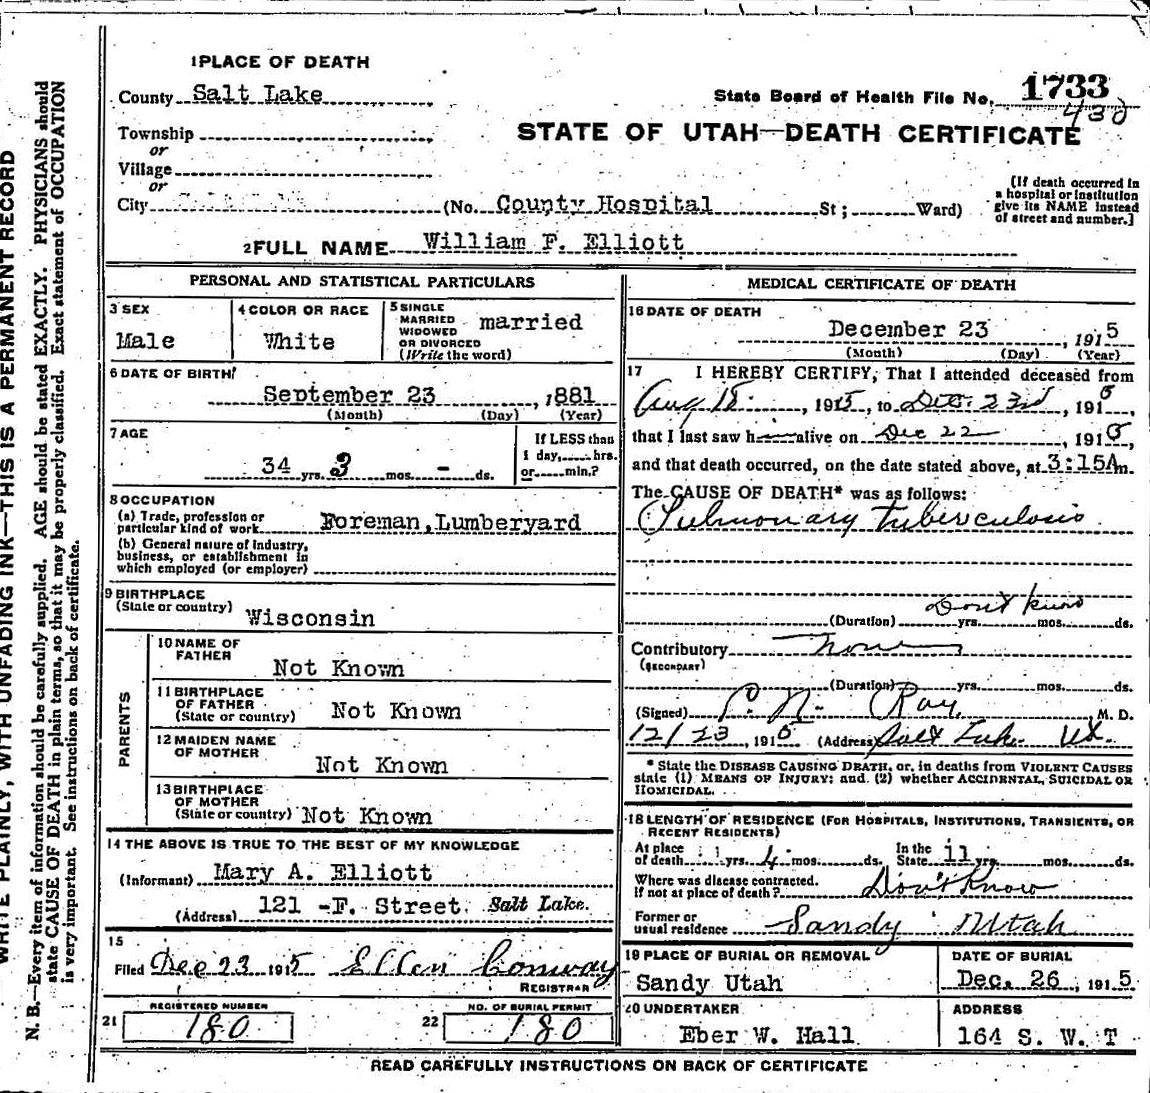 1 PLACE OF DEATH
County Salt Lake
State Board of Health File No. 1733
430
Township
or
STATE OF UTAH—DEATH CERTIFICATE
Village
or
City (No. County Hospital St; Ward)
(If death occurred in a hospital or institution give its NAME instead of street and number.]
2 FULL NAME William F. Elliott
PERSONAL AND STATISTICAL PARTICULARS
3 SEX
Male
4 COLOR OR RACE
White
5 SINGLE
MARRIED
WIDOWED
OR DIVORCED
(Write the word)
married
6 DATE OF BIRTH
September 23, 1881
(Month) (Day) (Year)
7 AGE
34 yrs. 3 mos. - ds.
If LESS than
1 day, hrs.
or min.?
8 OCCUPATION
(a) Trade, profession or
particular kind of work Foreman, Lumberyard
(b) General nature of Industry,
business, or establishment in
which employed (or employer)
9 BIRTHPLACE
(State or country) Wisconsin
PARENTS
10 NAME OF
FATHER
Not Known
11 BIRTHPLACE
OF FATHER
(State or country) Not Known
12 MAIDEN NAME
OF MOTHER
Not Known
13 BIRTHPLACE
OF MOTHER
(State or country) Not Known
14 THE ABOVE IS TRUE TO THE BEST OF MY KNOWLEDGE
(Informant) Mary A. Elliott
(Address) 121 -F. Street. Salt Lake.
15
Filed Dec 23 1915 Ellen Conway
REGISTRAR
REGISTERED NUMBER
21 180
NO. OF BURIAL PERMIT
22 180
MEDICAL CERTIFICATE OF DEATH
16 DATE OF DEATH
December 23, 1915
(Month) (Day) (Year)
17 I HEREBY CERTIFY, That I attended deceased from
Aug 18, 1915, to Dec. 23rd, 1915,
that I last saw h alive on Dec 22, 1915,
and that death occurred, on the date stated above, at 3:15A m.
The CAUSE OF DEATH* was as follows:
Pulmonary Tuberculosis
Don't know
(Duration) yrs. mos. ds.
Contributory None
(SECONDARY)
(Duration) yrs. mos. ds.
(Signed) P. N. Ray, M. D.
12/23, 1915 (Address) Salt Lake Ut.
* State the DISEASE CAUSING DEATH, or, in deaths from VIOLENT CAUSES
state (1) MEANS OF INJURY; and (2) whether ACCIDENTAL, SUICIDAL OR
HOMICIDAL.
18 LENGTH OF RESIDENCE (FOR HOSPITALS, INSTITUTIONS, TRANSIENTS, OR
RECENT RESIDENTS)
At place
of death yrs. 4 mos. ds.
In the
State 11 yrs. mos. ds.
Where was disease contracted.
If not at place of death? Don't Know
Former or
usual residence Sandy Utah
19 PLACE OF BURIAL OR REMOVAL
Sandy Utah
DATE OF BURIAL
Dec. 26, 1915
20 UNDERTAKER
Eber W. Hall
ADDRESS
164 S. W. T
READ CAREFULLY INSTRUCTIONS ON BACK OF CERTIFICATE
WRITE PLAINLY, WITH UNFADING INK—THIS IS A PERMANENT RECORD
N. B.—Every item of information should be carefully supplied. AGE should be stated EXACTLY. PHYSICIANS should
state CAUSE OF DEATH in plain terms, so that it may be properly classified. Exact statement of OCCUPATION
is very important. See instructions on back of certificate.